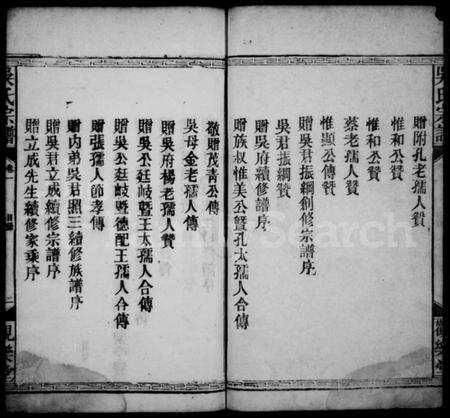 贈附孔老孺人贊
惟和公贊
惟和公贊
蔡老孺人贊
惟顯公傳贊
贈吳君振綱創修宗譜序
吳君振綱贊
贈吳府續修譜序
贈族叔惟美公暨孔太孺人合傳
敬贈茂青公傳
吳母金老孺人傳
吳府楊老孺人贊
吳公廷岐暨王太孺人合傳
吳公廷岐暨德配王孺人合傳
贈張孺人節孝傳
贈内弟吳君照三續修族譜序
贈吳君立威續修宗譜序
贈立威先生續修家乘序
吳氏宗譜
卷一
二
吳氏宗譜
Search